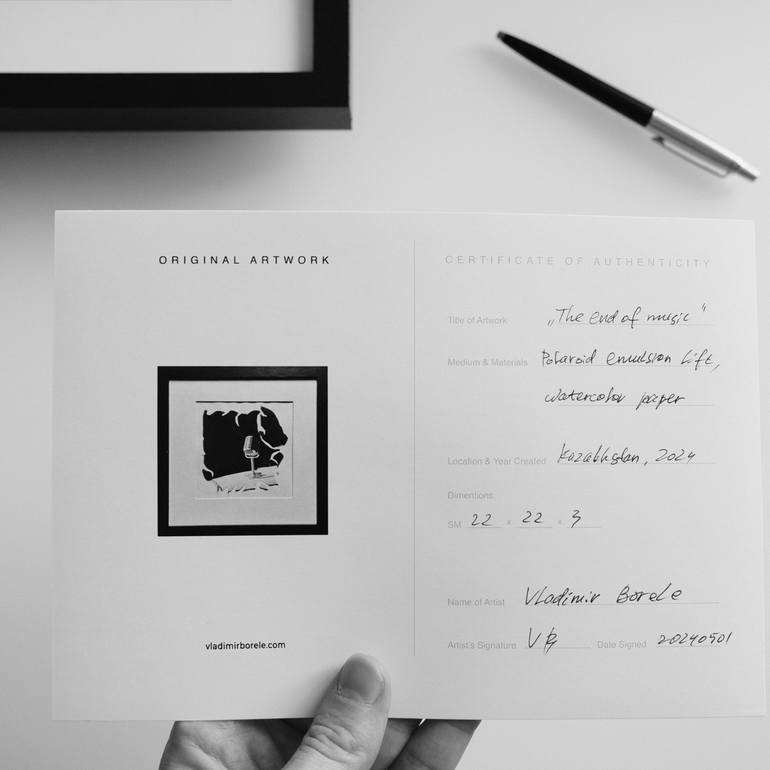 ORIGINAL ARTWORK
vladimirborele.com
CERTIFICATE OF AUTHENTICITY
Title of Artwork „The end of music"
Medium & Materials Polaroid emulsion lift,
watercolor paper
Location & Year Created Kazakhstan, 2024
Dimentions
SM 22 x 22 x 3
Name of Artist Vladimir Borele
Artist's Signature VB Date Signed 20240501